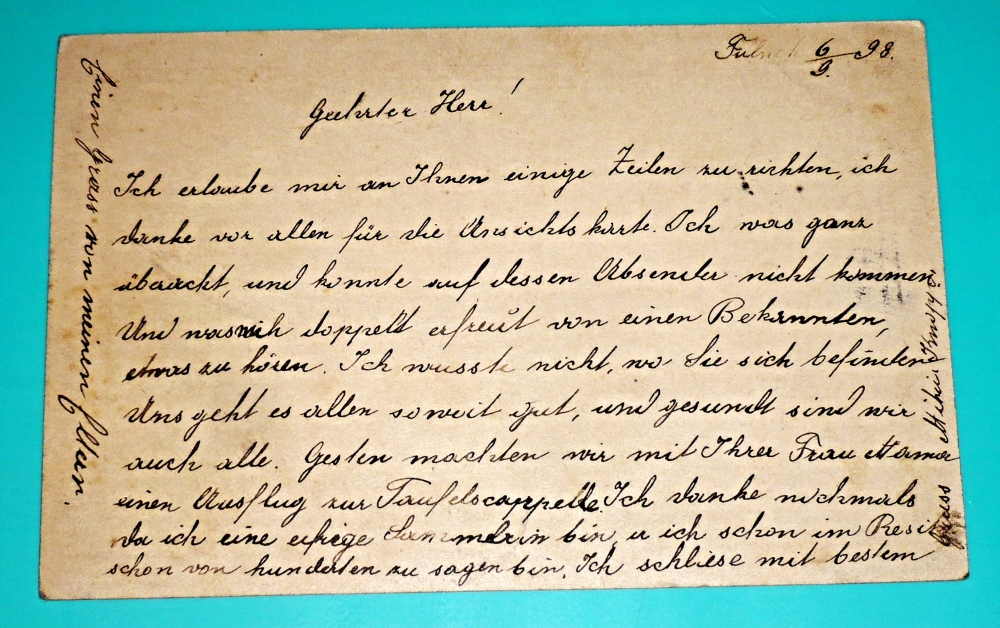 6/9. 98.
Geehrter Herr!
Ich erlaube mir an Ihnen einige Zeilen zu richten, ich
danke vor allen für die Ansichtskarte. Ich was ganz
und konnte auf dessen Absender nicht kommen.
Und was mich doppelt erfreut von einen Bekannten,
etwas zu hören. Ich wusste nicht, wo Sie sich befinden
Uns geht es allen soweit gut, und gesundt sind wir
auch alle. Gesten machten wir mit Ihrer Frau Mama
einen Ausflug zur Taufelscappelle Ich danke nochmals
da ich eine eifrige Sammelrin bin, u ich schon im Resit
schon von hunderten zu sagen bin. Ich schliese mit bestem
Gruss
Einen Gruss von meinen Eltern.